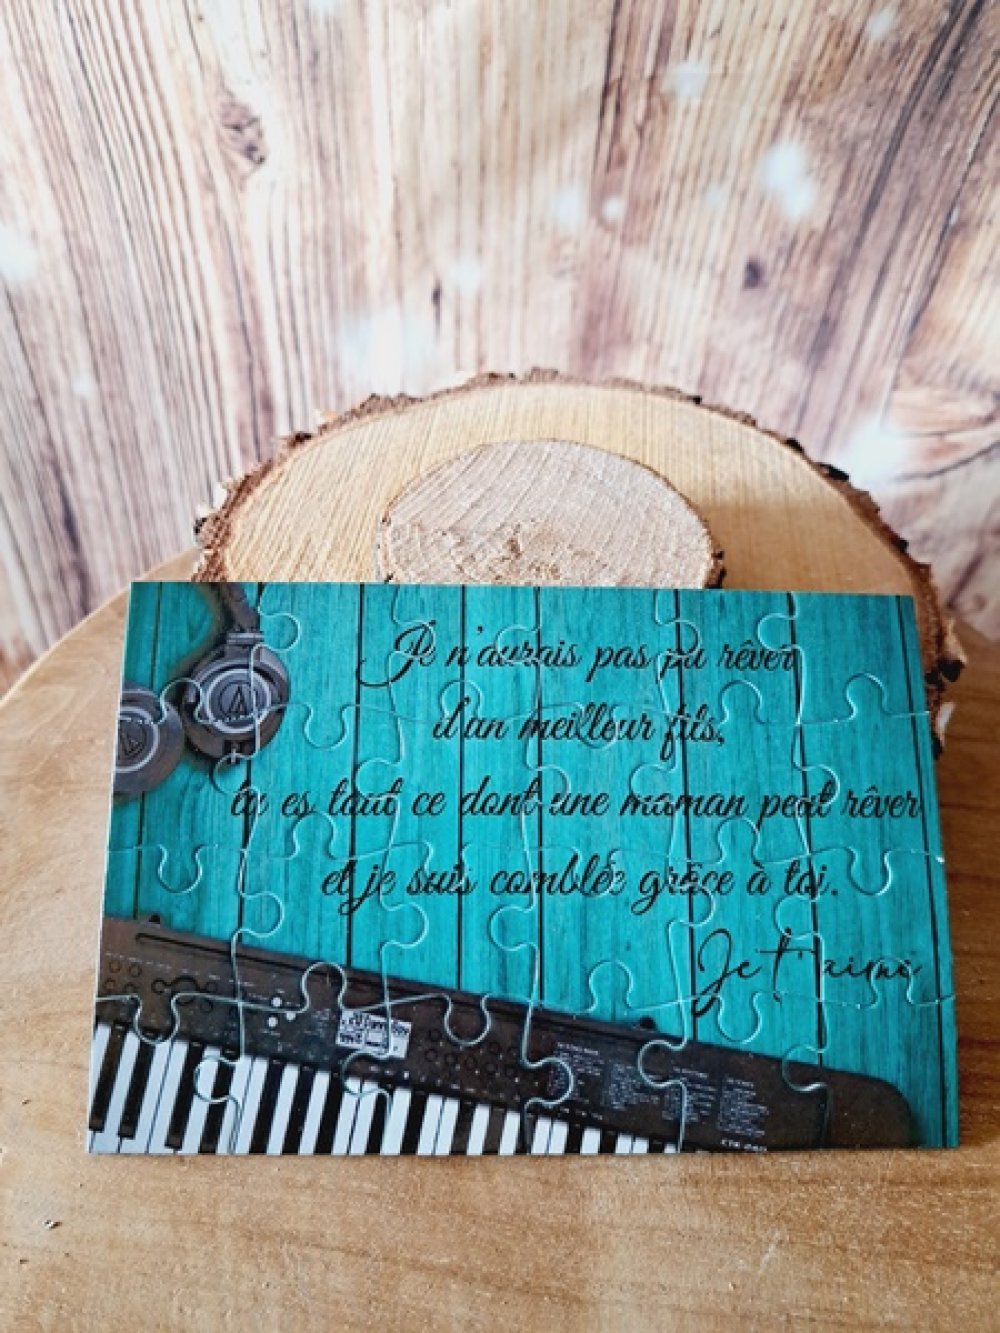 Je n'aurais pas pu rêver
d'un meilleur fils,
tu es tout ce dont une maman peut rêver
et je suis comblée grâce à toi.
Je t'aime